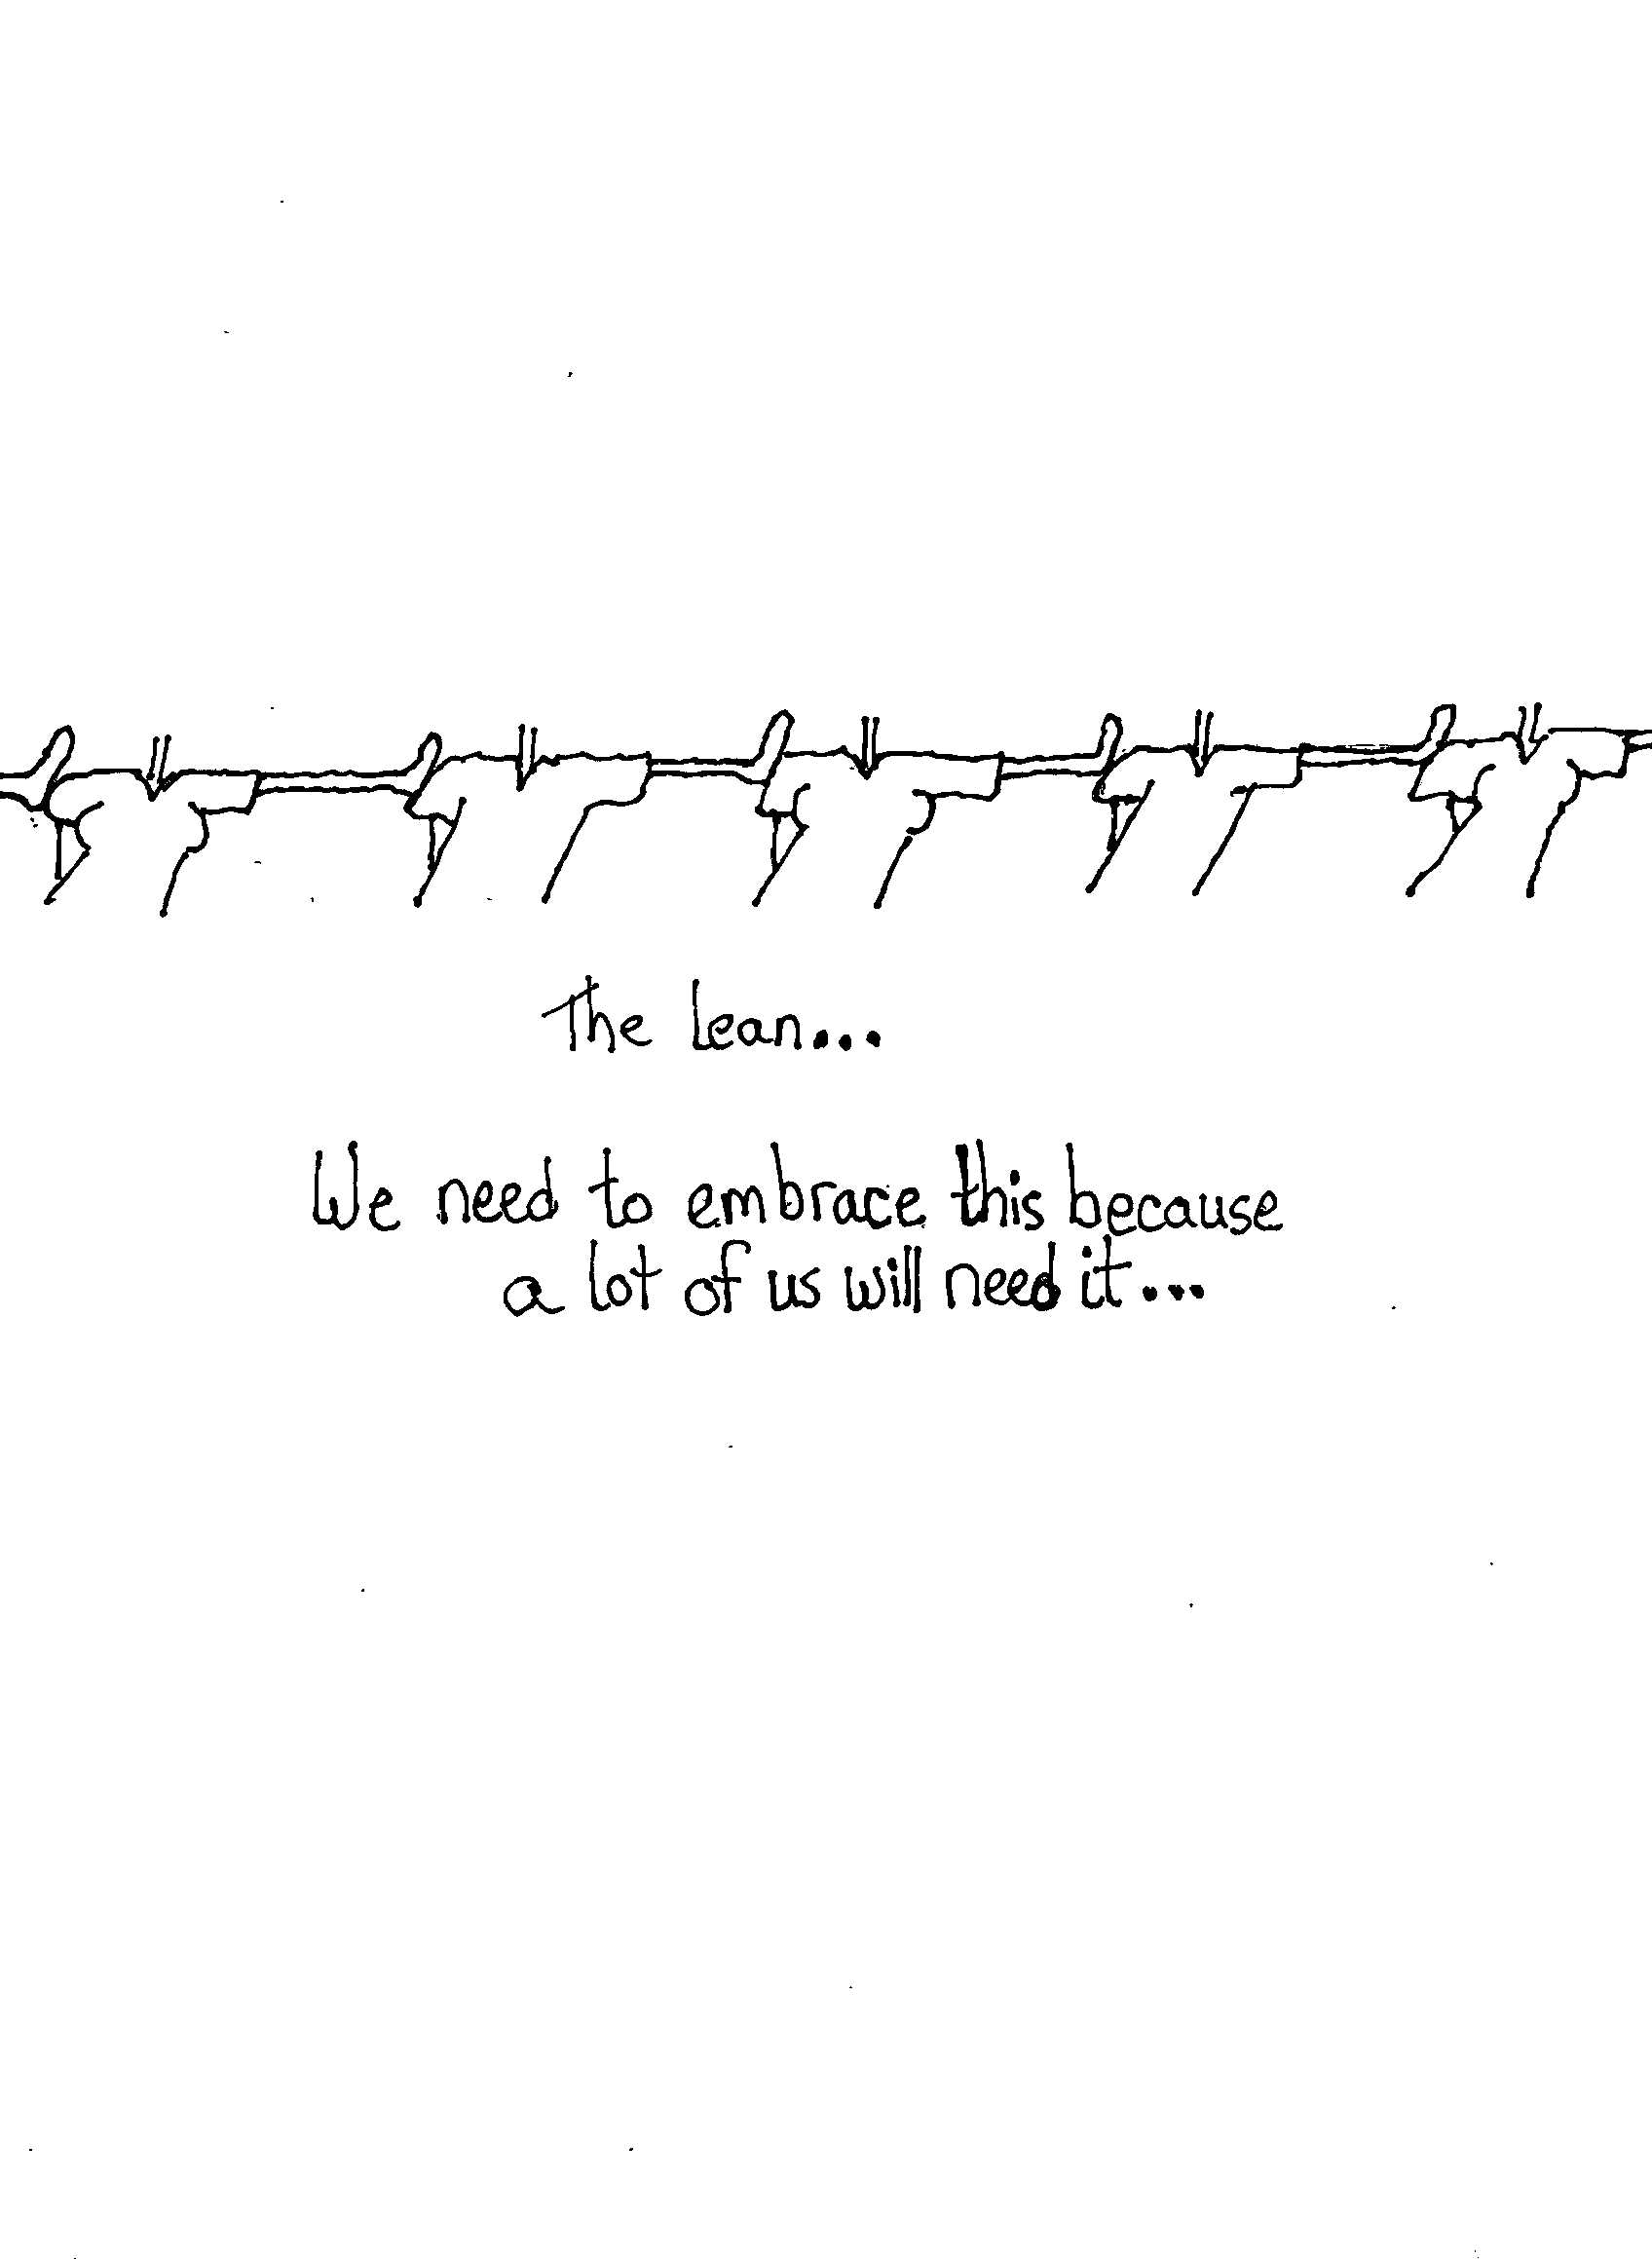 The lean...
We need to embrace this because
a lot of us will need it...